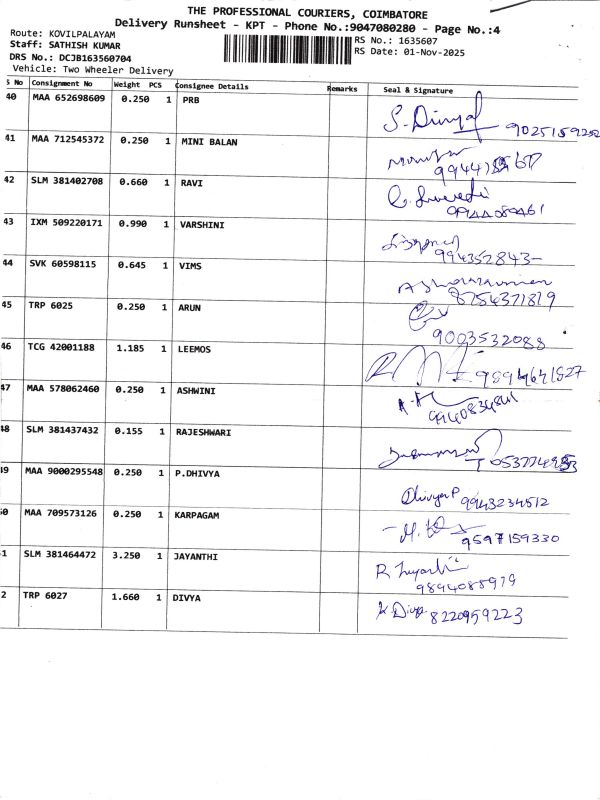 THE PROFESSIONAL COURIERS, COIMBATORE
Delivery Runsheet - KPT - Phone No.:9047080280 - Page No.:4
Route: KOVILPALAYAM
Staff: SATHISH KUMAR
DRS No.: DCJB163560704
Vehicle: Two Wheeler Delivery
RS No.: 1635607
RS Date: 01-Nov-2025
S No Consignment No Weight PCS Consignee Details Remarks Seal & Signature
40 MAA 652698609 0.250 1 PRB S. Divya
41 MAA 712545372 0.250 1 MINI BALAN
42 SLM 381402708 0.660 1 RAVI
43 IXM 509220171 0.990 1 VARSHINI
994352843-
44 SVK 60598115 0.645 1 VIMS
8754371819
45 TRP 6025 0.250 1 ARUN
9003532088
46 TCG 42001188 1.185 1 LEEMOS 9894641827
47 MAA 578062460 0.250 1 ASHWINI
48 SLM 381437432 0.155 1 RAJESHWARI
49 MAA 9000295548 0.250 1 P.DHIVYA Dhivya P 9943234512
50 MAA 709573126 0.250 1 KARPAGAM
9597159330
51 SLM 381464472 3.250 1 JAYANTHI
9894085979
52 TRP 6027 1.660 1 DIVYA K. Divya 8220959223